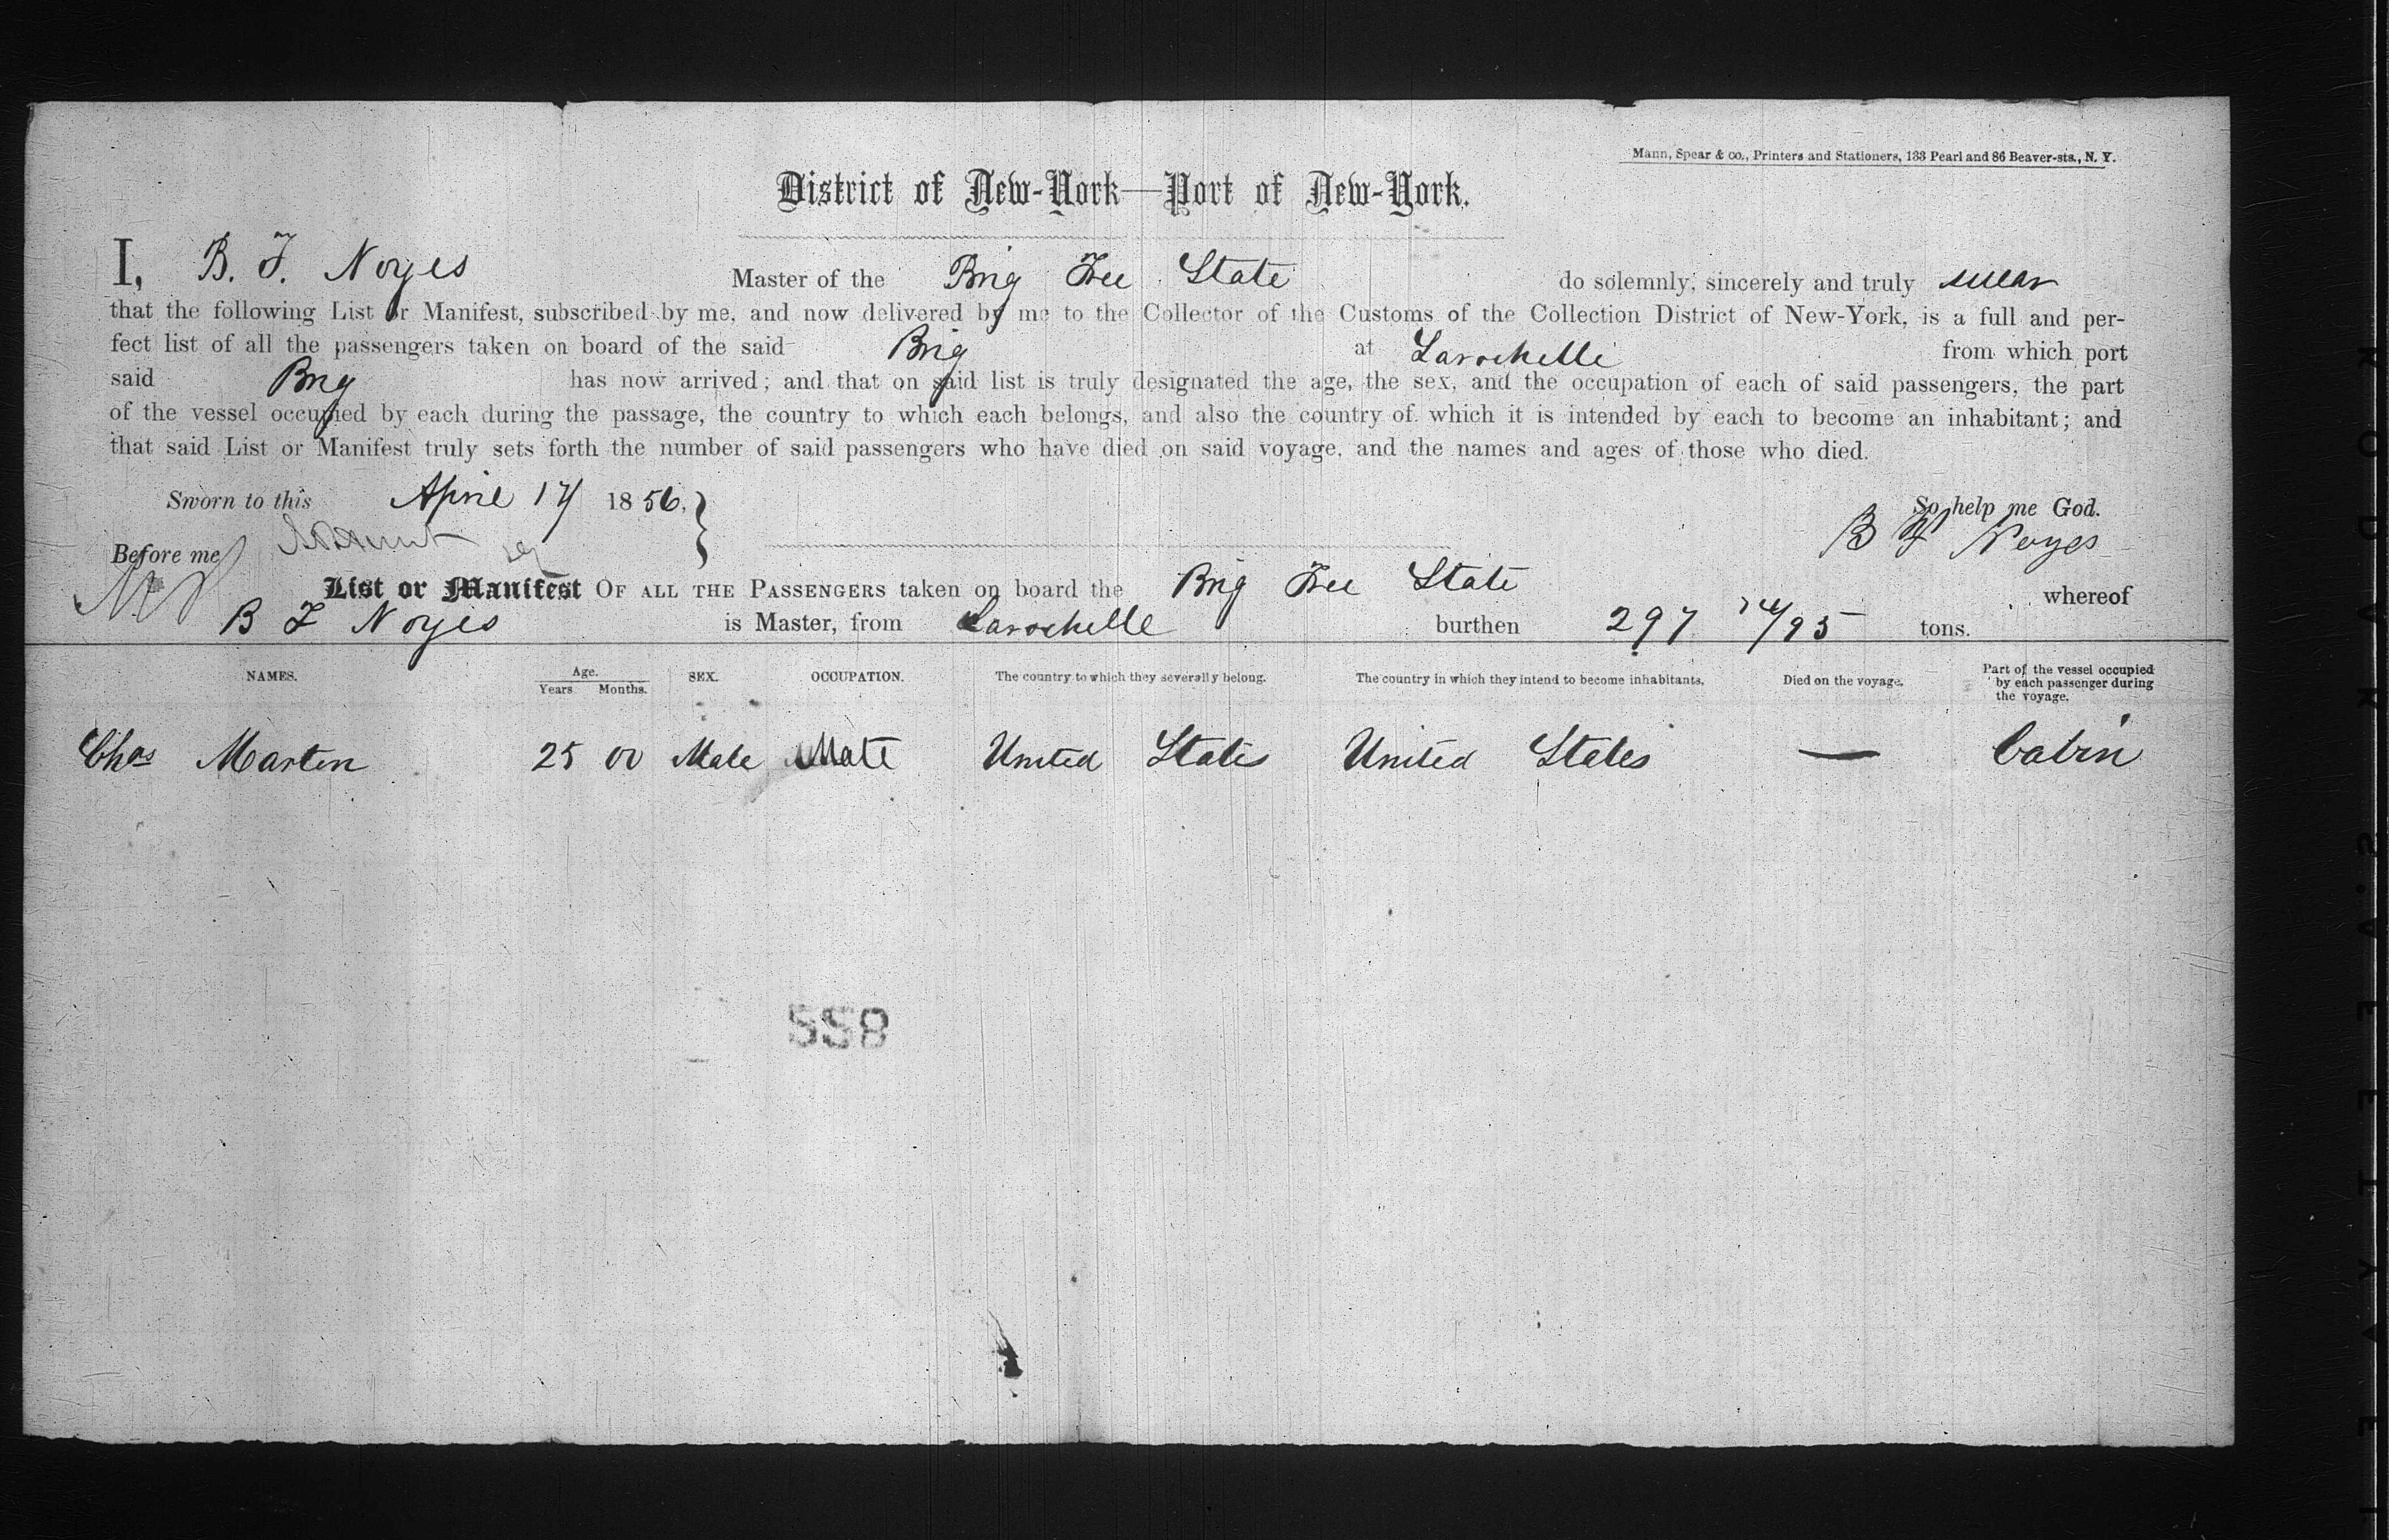 Mann, Spear & co., Printers and Stationers, 133 Pearl and 86 Beaver-sts., N. Y.
District of New-York—Port of New-York.
I, B. F. Noyes Master of the Brig Free State do solemnly, sincerely and truly swear
that the following List or Manifest, subscribed by me, and now delivered by me to the Collector of the Customs of the Collection District of New-York, is a full and per-
fect list of all the passengers taken on board of the said Brig at Larochelle from which port
said Brig has now arrived; and that on said list is truly designated the age, the sex, and the occupation of each of said passengers, the part
of the vessel occupied by each during the passage, the country to which each belongs, and also the country of which it is intended by each to become an inhabitant; and
that said List or Manifest truly sets forth the number of said passengers who have died on said voyage, and the names and ages of those who died.
Sworn to this April 17 1856, So help me God.
Before me B F Noyes
List or Manifest OF ALL THE PASSENGERS taken on board the Brig Free State whereof
B F Noyes is Master, from Larochelle burthen 297 /95 tons.
NAMES. Age. Years Months. SEX. OCCUPATION. The country to which they severally belong. The country in which they intend to become inhabitants. Died on the voyage. Part of the vessel occupied by each passenger during the voyage.
Chas Marten 25 00 Male Mate United States United States — Cabin
558